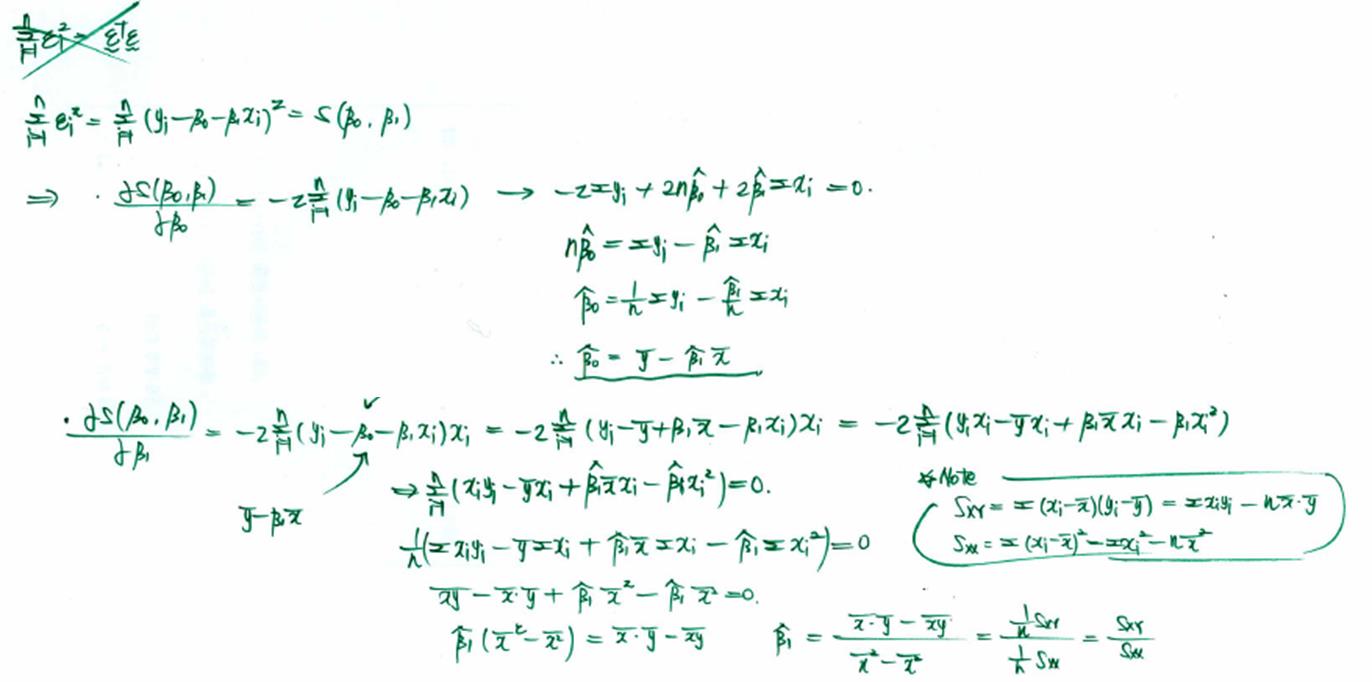 ∑_{i=1}^{n} ε_i² = ε^T ε
∑_{i=1}^{n} ε_i² = ∑_{i=1}^{n} (y_i − β_0 − β_1 x_i)² = S(β_0, β_1)
⇒ · ∂S(β_0, β_1)/∂β_0 = −2∑_{i=1}^{n} (y_i − β_0 − β_1 x_i) → −2∑y_i + 2nβ̂_0 + 2β̂_1∑x_i = 0.
nβ̂_0 = ∑y_i − β̂_1∑x_i
β̂_0 = 1/n ∑y_i − β̂_1/n ∑x_i
∴ β̂_0 = ȳ − β̂_1 x̄
· ∂S(β_0, β_1)/∂β_1 = −2∑_{i=1}^{n} (y_i − β_0 − β_1 x_i)x_i = −2∑_{i=1}^{n} (y_i − ȳ + β_1 x̄ − β_1 x_i)x_i = −2∑_{i=1}^{n} (y_i x_i − ȳ x_i + β_1 x̄ x_i − β_1 x_i²)
ȳ − β_1 x̄
⇒ ∑_{i=1}^{n} (x_i y_i − ȳ x_i + β̂_1 x̄ x_i − β̂_1 x_i²) = 0.
1/n (∑x_i y_i − ȳ∑x_i + β̂_1 x̄∑x_i − β̂_1∑x_i²) = 0
\overline{xy} − x̄·ȳ + β̂_1 x̄² − β̂_1 \overline{x²} = 0.
β̂_1 (x̄² − \overline{x²}) = x̄·ȳ − \overline{xy}
β̂_1 = (x̄·ȳ − \overline{xy})/(x̄² − \overline{x²}) = (1/n S_{XY})/(1/n S_{XX}) = S_{XY}/S_{XX}
※ Note
S_{XY} = ∑(x_i − x̄)(y_i − ȳ) = ∑x_i y_i − n x̄·ȳ
S_{XX} = ∑(x_i − x̄)² = ∑x_i² − n x̄²